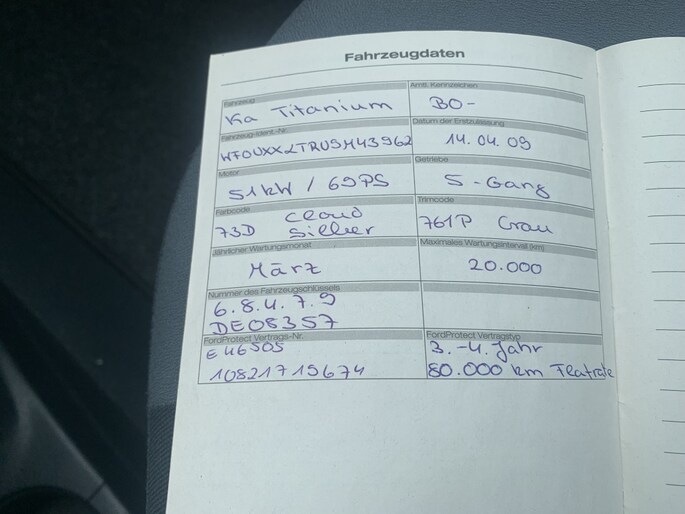 Fahrzeugdaten
Fahrzeug
Ka Titanium
Amtl. Kennzeichen
BO-
Fahrzeug-Ident.-Nr.
WF0UXXLTRU9M43962
Datum der Erstzulassung
14.04.09
Motor
51kW / 69PS
Getriebe
5-Gang
Farbcode
73D Cloud
Silber
Trimcode
761P Grau
Jährlicher Wartungsmonat
März
Maximales Wartungsintervall (km)
20.000
Nummer des Fahrzeugschlüssels
6.8.4.7.9
DE08357
FordProtect Vertrags-Nr.
E46505
10821715674
FordProtect Vertragstyp
3.-4. Jahr
80.000 km